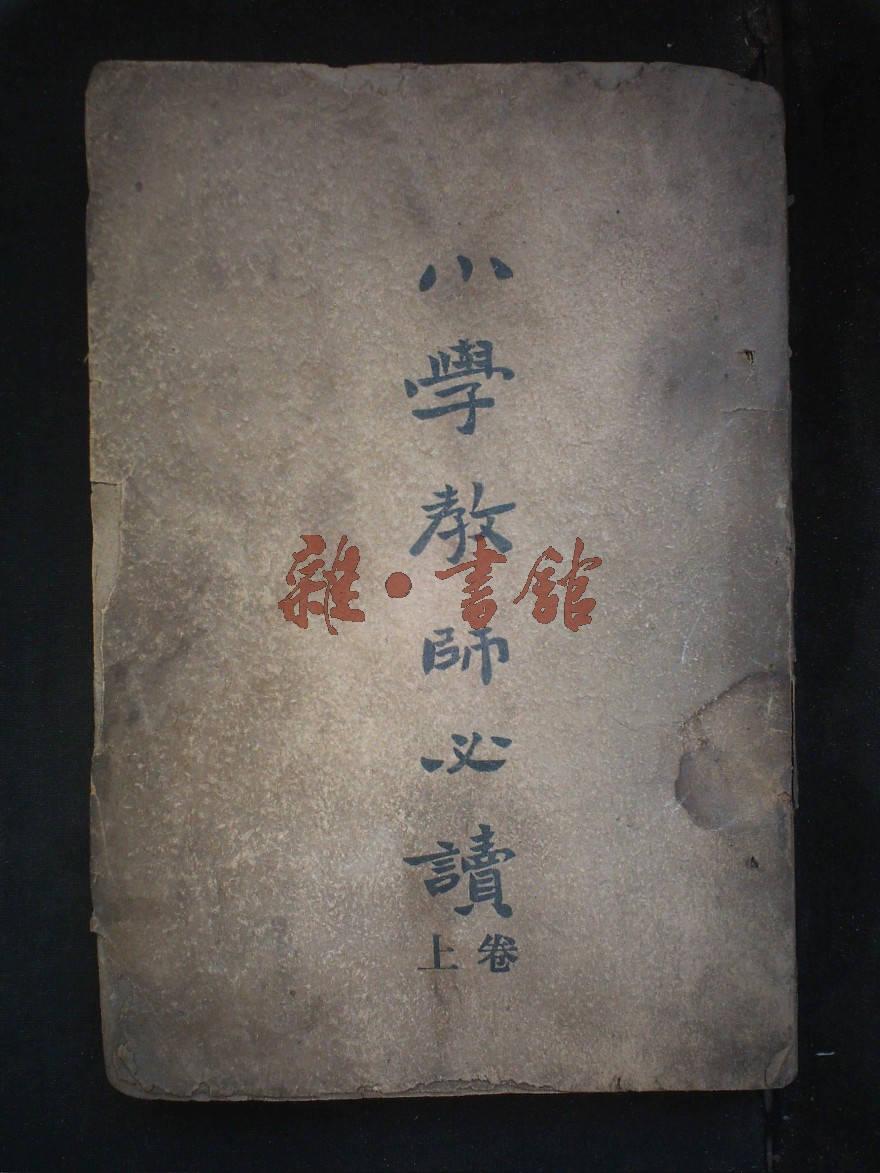 小學教師必讀
卷上
雜·書舘